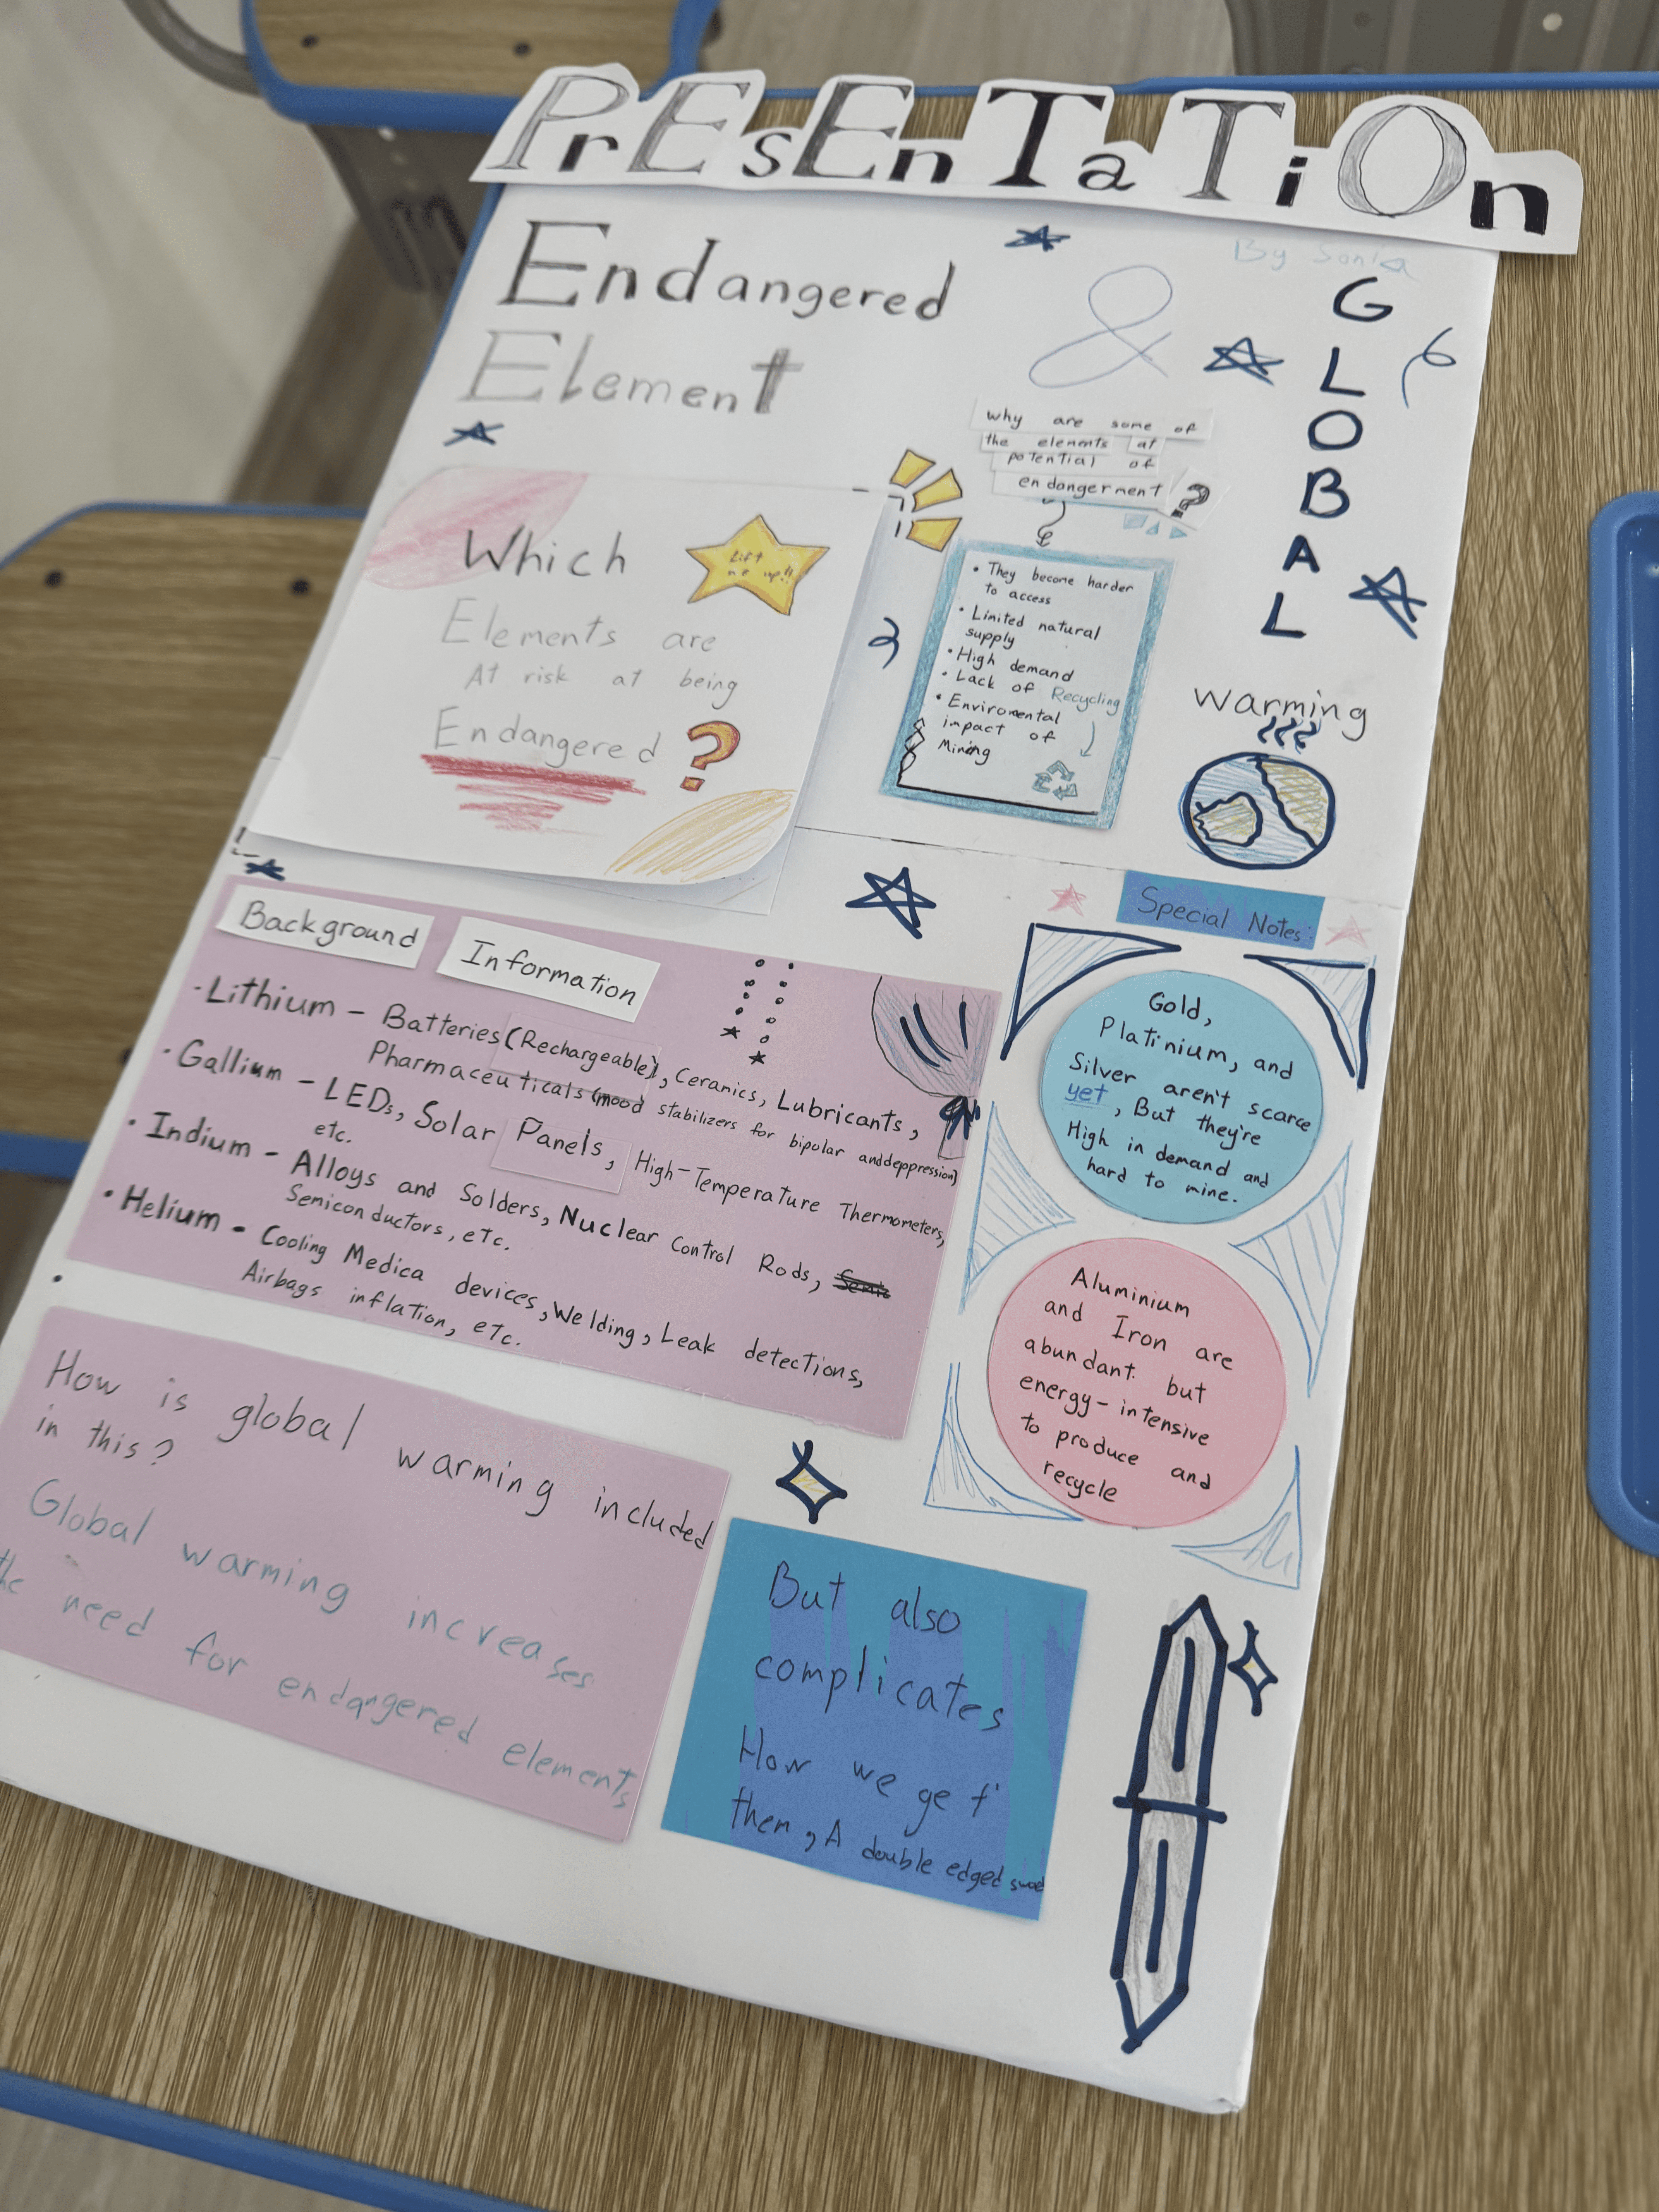 PrEsEnTaTiOn
By Sonia
Endangered
Element
&
GLOBAL
warming
why are some of
the elements at
potential of
endangerment
?
• They become harder
to access
• Limited natural
supply
• High demand
• Lack of Recycling
• Enviromental
impact of
Mining
Which
Lift
me up!!
Elements are
At risk at being
Endangered ?
Background Information
- Lithium - Batteries (Rechargeable), Ceramics, Lubricants,
Pharmaceuticals (mood stabilizers for bipolar and deppression)
• Gallium - LEDs, Solar Panels, High-Temperature Thermometers,
etc.
• Indium - Alloys and Solders, Nuclear Control Rods,
Semiconductors, etc.
• Helium - Cooling Medica devices, Welding, Leak detections,
Airbags inflation, etc.
•
Special Notes:
Gold,
Platinium, and
Silver aren't scarce
yet, But they're
High in demand and
hard to mine.
Aluminium
and Iron are
abundant but
energy-intensive
to produce and
recycle
How is global warming included
in this?
Global warming increases
the need for endangered elements
But also
complicates
How we get
them, A double edged